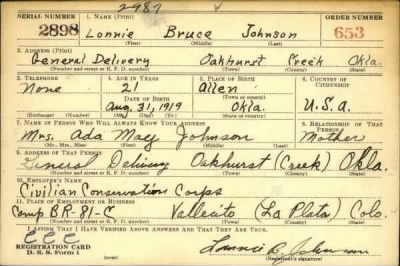 2987
SERIAL NUMBER 1. NAME (Print) ORDER NUMBER
2898 Lonnie Bruce Johnson 653
(First) (Middle) (Last)
2. ADDRESS (Print)
General Delivery Oakhurst Creek Okla.
(Number and street or R. F. D. number) (Town) (County) (State)
3. TELEPHONE 4. AGE IN YEARS 5. PLACE OF BIRTH 6. COUNTRY OF CITIZENSHIP
None 21 Allen
DATE OF BIRTH (Town or county)
Aug. 31, 1919 Okla. U.S.A.
(Exchange) (Number) (Mo.) (Day) (Yr.) (State or country)
7. NAME OF PERSON WHO WILL ALWAYS KNOW YOUR ADDRESS 8. RELATIONSHIP OF THAT PERSON
Mrs. Ada May Johnson Mother
(Mr., Mrs., Miss) (First) (Middle) (Last)
9. ADDRESS OF THAT PERSON
General Delivery Oakhurst (Creek) Okla.
(Number and street or R. F. D. number) (Town) (County) (State)
10. EMPLOYER'S NAME
Civilian Conservation Corps
11. PLACE OF EMPLOYMENT OR BUSINESS
Camp BR-81-C Vallecito (La Plata) Colo.
(Number and street or R. F. D. number) (Town) (County) (State)
I AFFIRM THAT I HAVE VERIFIED ABOVE ANSWERS AND THAT THEY ARE TRUE.
CCC
REGISTRATION CARD Lonnie B. Johnson
D. S. S. Form 1 (Registrant's signature)